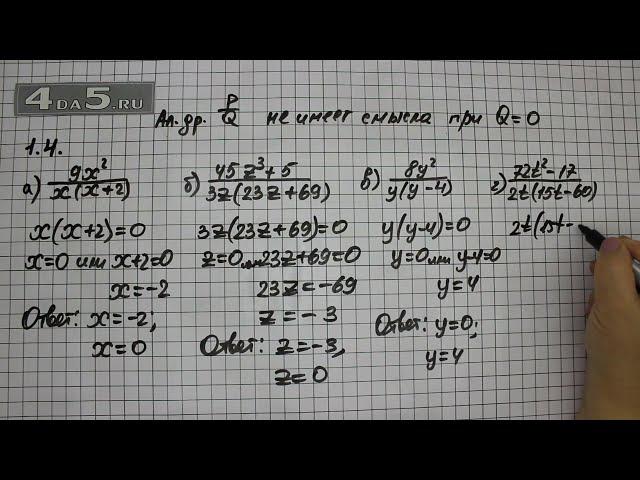 4DA5.RU
Ал.др. P/Q не имеет смысла при Q=0
1.4.
а) 9x²/x(x+2)
x(x+2)=0
x=0 или x+2=0
x=-2
Ответ: x=-2;
x=0
б) 45z³+5/3z(23z+69)
3z(23z+69)=0
z=0 или 23z+69=0
23z=-69
z=-3
Ответ: z=-3,
z=0
в) 8y²/y(y-4)
y(y-4)=0
y=0 или y-4=0
y=4
Ответ: y=0;
y=4
г) 72t²-17/2t(15t-60)
2t(15t-